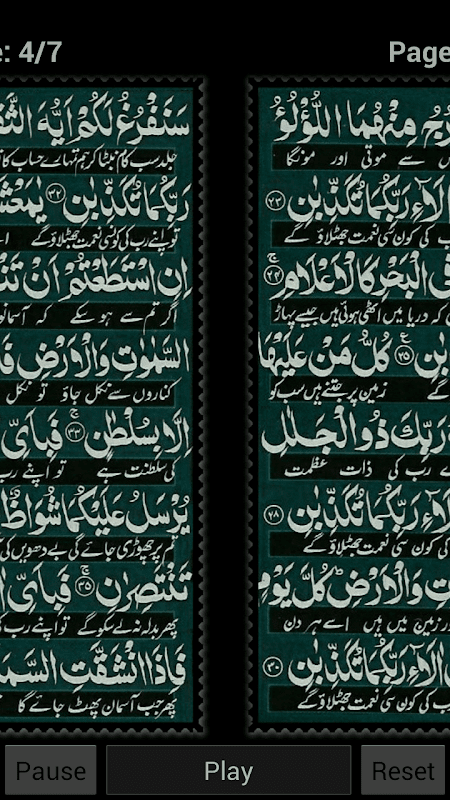 e: 4/7
Page
مِنْهُمَا اللُّؤْلُؤُ
سے موتی اور مونگا
اٰلَآءِ رَبِّكُمَا تُكَذِّبٰنِ ۲۳
کی کون سی نعمت جھٹلاؤ گے
الْبَحْرِ كَالْاَعْلَامِ ۲۴
کہ دریا میں اٹھی ہوئی ہیں جیسے پہاڑ
۲۵ كُلُّ مَنْ عَلَيْهَا
گے زمین پر جتنے ہیں سب کو
رَبِّكَ ذُو الْجَلٰلِ
رب کی ذات عظمت
رَبِّكُمَا تُكَذِّبٰنِ ۲۸
کی کون سی نعمت جھٹلاؤ گے
وَالْاَرْضِ كُلَّ يَوْمٍ
زمین میں ہیں اسے ہر دن
اٰلَآءِ رَبِّكُمَا تُكَذِّبٰنِ ۳۰
کی کون سی نعمت جھٹلاؤ گے
سَنَفْرُغُ لَكُمْ اَيُّهَ
جلد سب کام نبٹا کر ہم تمہارے حساب کا
رَبِّكُمَا تُكَذِّبٰنِ ۳۲
تو اپنے رب کی کونسی نعمت جھٹلاؤ گے
اِنِ اسْتَطَعْتُمْ اَنْ
اگر تم سے ہو سکے کہ
السَّمٰوٰتِ وَالْاَرْضِ
کناروں سے نکل جاؤ تو نکل
اِلَّا بِسُلْطٰنٍ ۳۳ فَبِاَىِّ
کی سلطنت ہے تو اپنے رب
يُرْسَلُ عَلَيْكُمَا شُوَاظٌ
تم پر چھوڑی جائے گی بے دھویں کی
تَنْتَصِرٰنِ ۳۵ فَبِاَىِّ
پھر بدلہ نہ لے سکو گے تو اپنے رب
فَاِذَا انْشَقَّتِ
پھر جب آسمان پھٹ جائے گا
Pause
Play
Reset